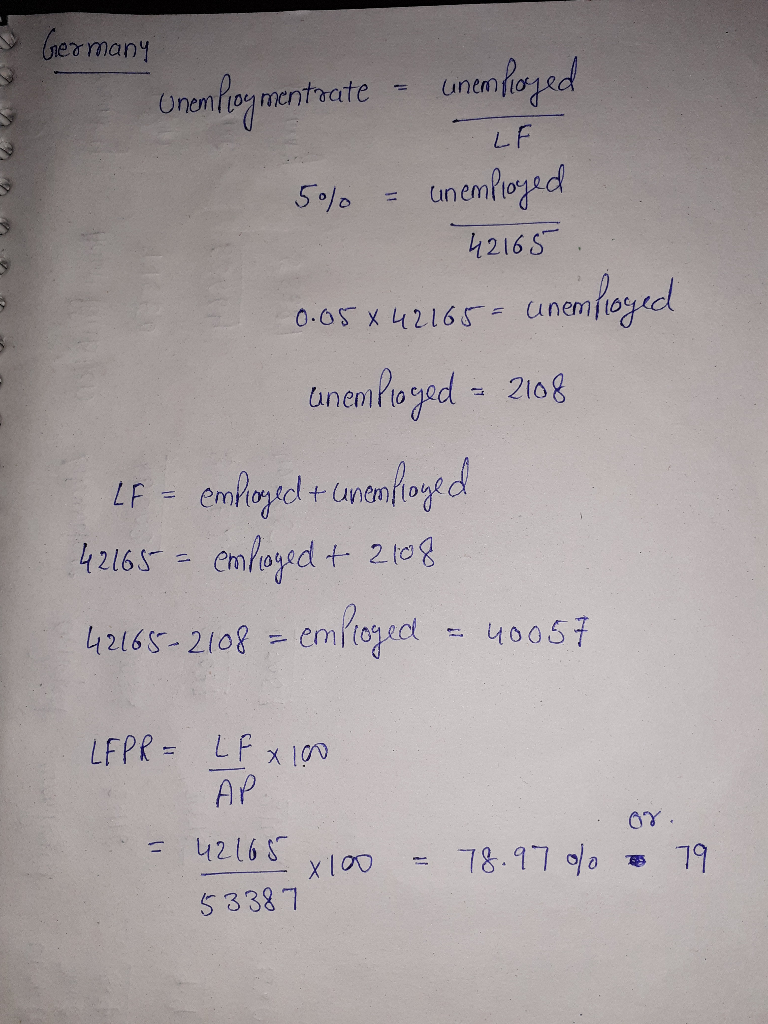 Germany
Unemploymentrate = unemployed
LF
5% = unemployed
42165
0.05 x 42165 = unemployed
unemployed = 2108
LF = employed + unemployed
42165 = employed + 2108
42165 - 2108 = employed = 40057
LFPR = LF x 100
AP
or.
= 42165 x 100 = 78.97 % 79
53387